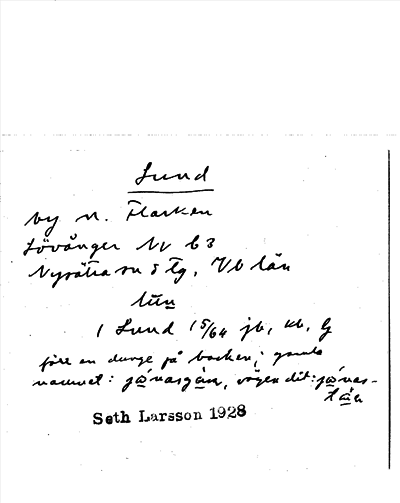 Lund
by n. Flarken
Lövånger NV b3
Nysätra sn o tg, Vb län
lún
1 Lund 1 5/64 jb, kb, G
förr en dunge på backen; gamla
namnet: jónasgàn, vägen dit: jónas-
tàn
Seth Larsson 1928